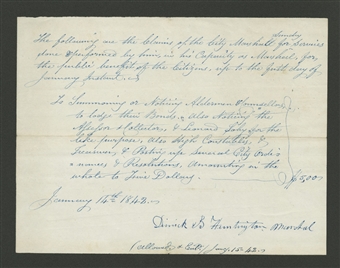 sundry
The following are the Claims of the City Marshall for Services
done & performed by him, in his Capacity of Marshal, for
the public benefit of the Citizens, up to the fifth day of
January instant. viz
To Summoning or Notifying Aldermen & Counsellors
to lodge their Bonds, also Notifying the
Assessor & Collectors, & Leonard Soby for the
like purpose, also High Constables, &
Treasurer, & Posting up Several City Ordi-
nances & Resolutions, Amounting in the
whole to Five Dollars. $5,00
January 14th 1842.
Dimick B Huntington Marshal
(allowed &
Jany. 15. 42.